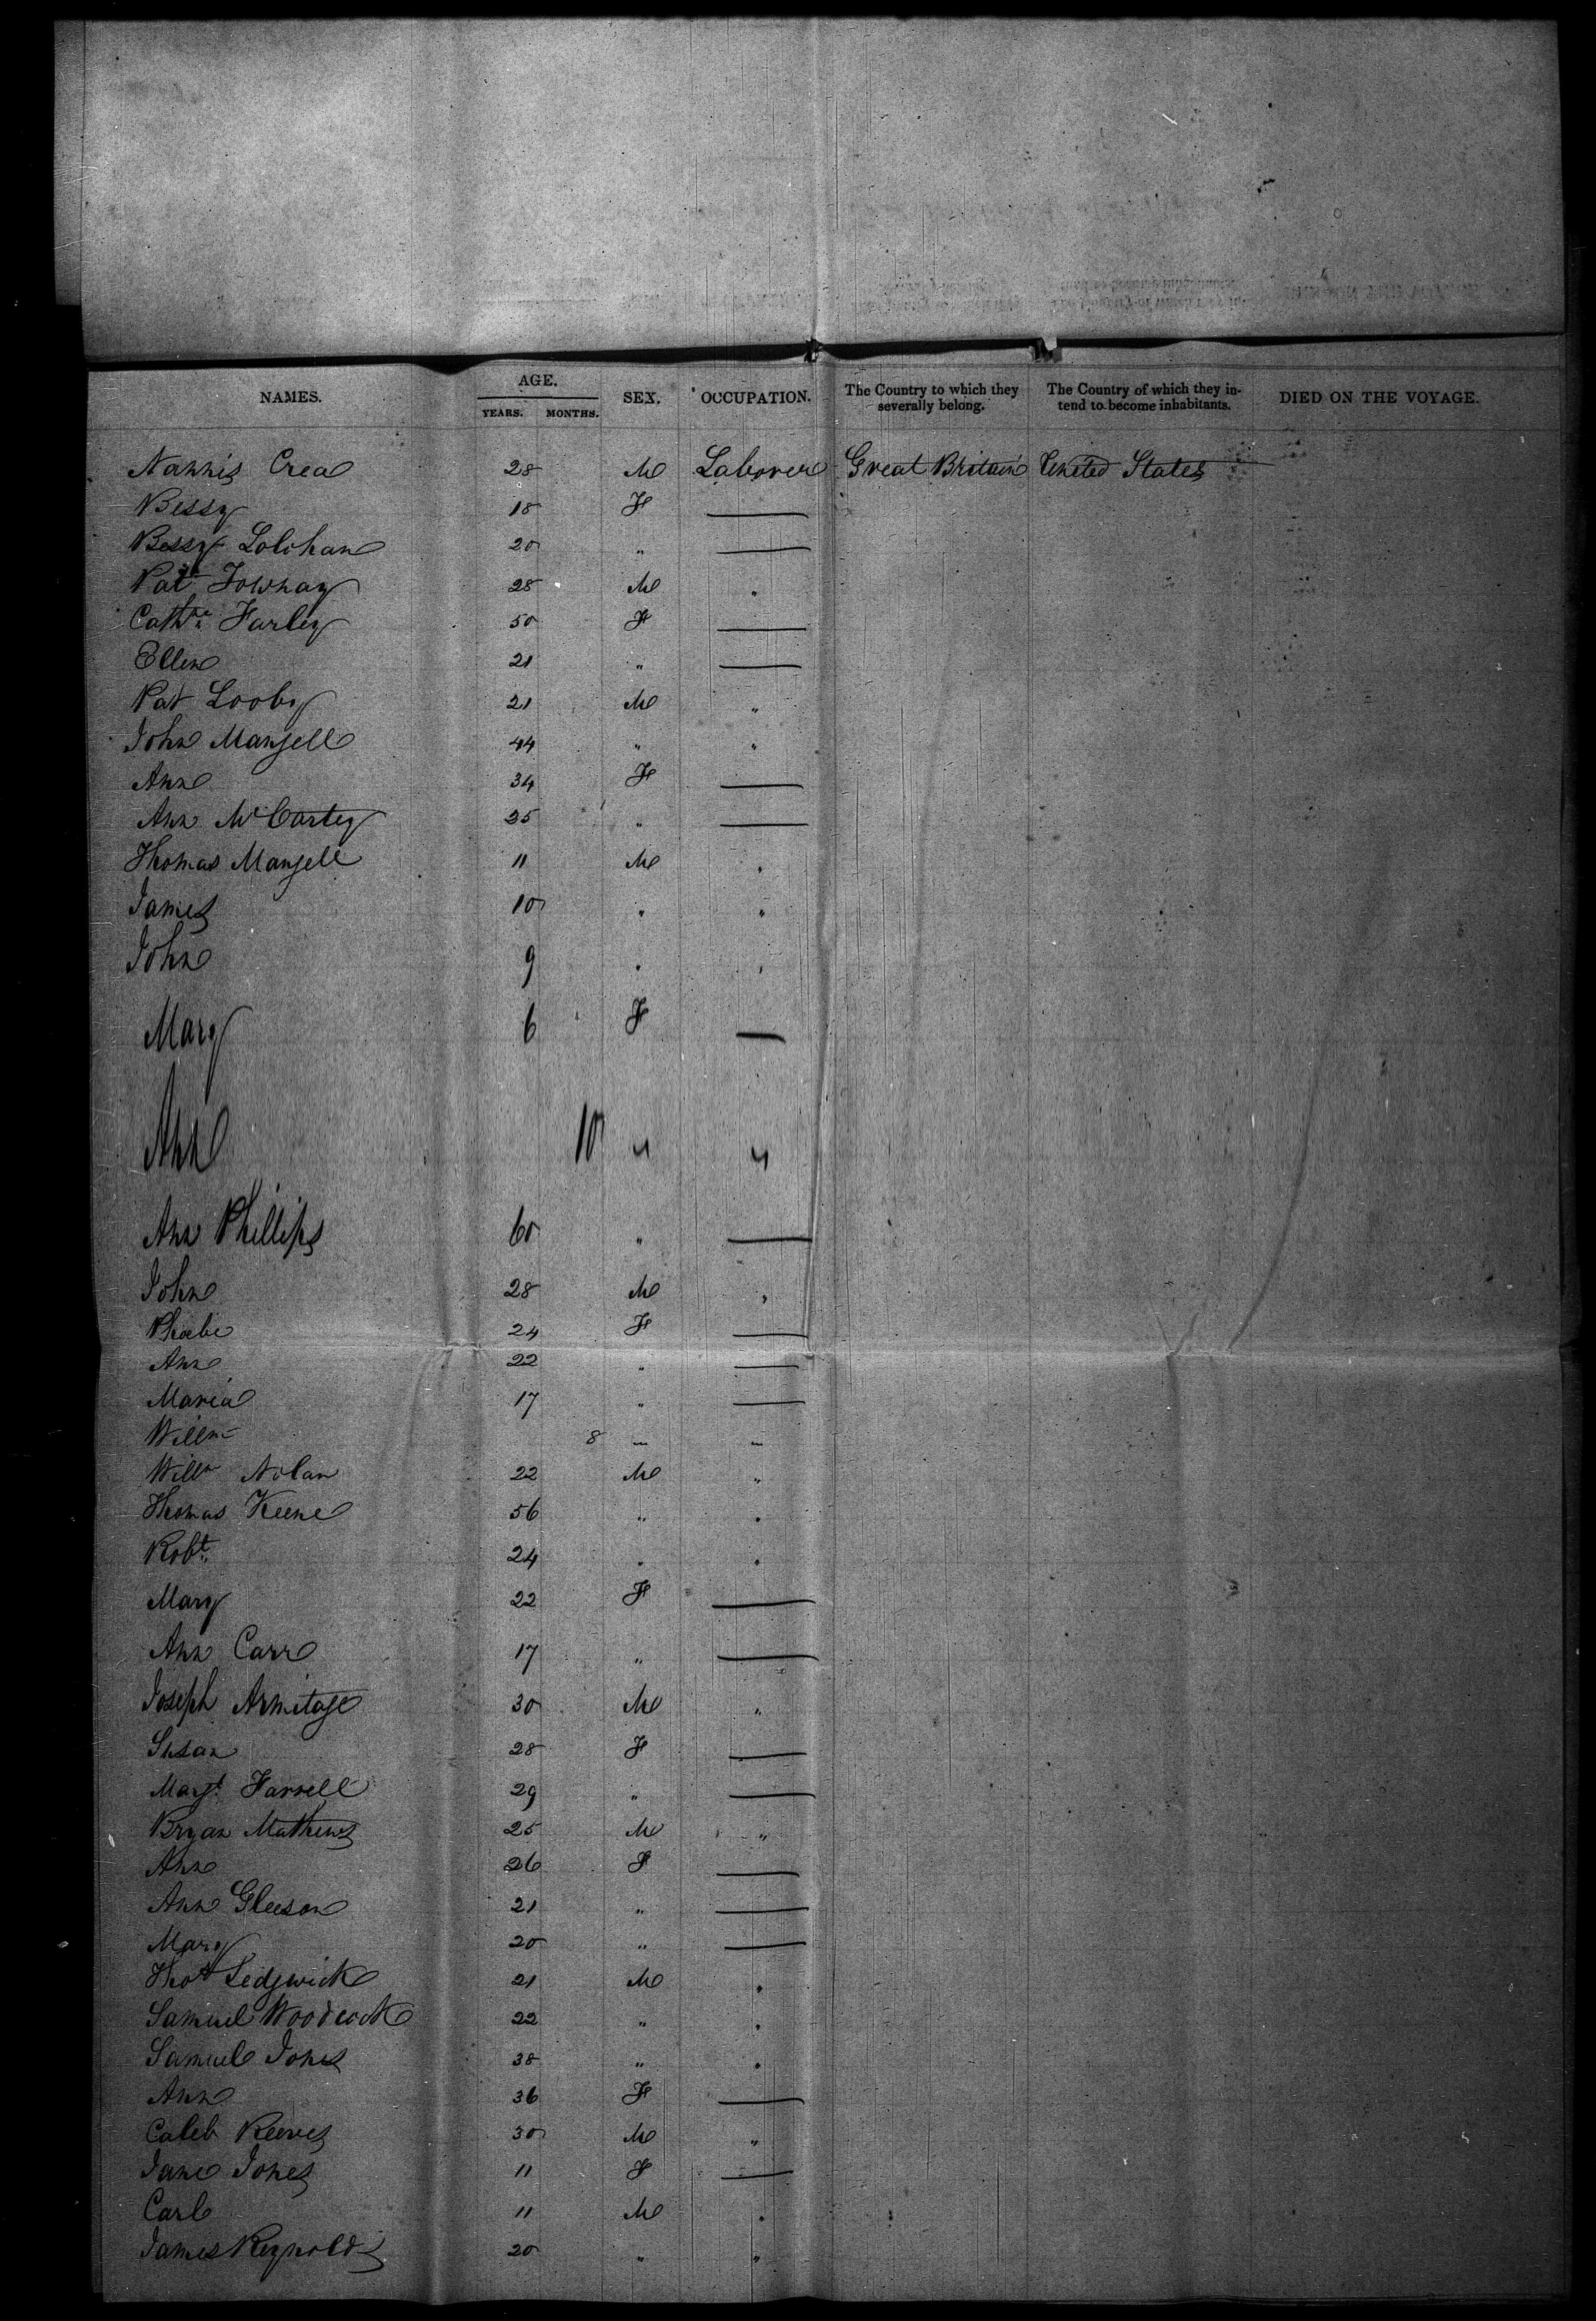 NAMES. AGE. SEX. OCCUPATION. The Country to which they severally belong. The Country of which they intend to become inhabitants. DIED ON THE VOYAGE.
YEARS. MONTHS.
Crea 28 M Laborer Great Britain United States
Bessy 18 F —
Bessy Lolihan 20 " —
Pat 28 M "
Cathne Farley 50 F —
Ellen 21 " —
Pat Looby 21 M "
John Mansell 44 " "
Ann 34 F —
Ann McCartey 25 " —
Thomas Mansell 11 M "
James 10 " "
John 9 " "
Mary 6 F —
Ann 10 " "
Ann Phillips 60 " —
John 28 M "
Phoebe 24 F —
Ann 22 " —
Maria 17 " —
Willm 8 " "
Willm Nolan 22 M "
Thomas Keene 56 " "
Robt. 24 " "
Mary 22 F —
Ann Carr 17 " —
Joseph Armitage 30 M "
Susan 28 F —
Margt. Farrell 29 " —
Bryan Mathews 25 M "
Ann 26 F —
Ann Gleeson 21 " —
Mary 20 " —
Thos Sedgwick 21 M "
Samuel Woodcock 22 " "
Samuel Jones 38 " "
Ann 36 F —
Caleb Reeves 30 M "
Jane Jones 11 F —
Carl 11 M "
James Reynolds 20 " "